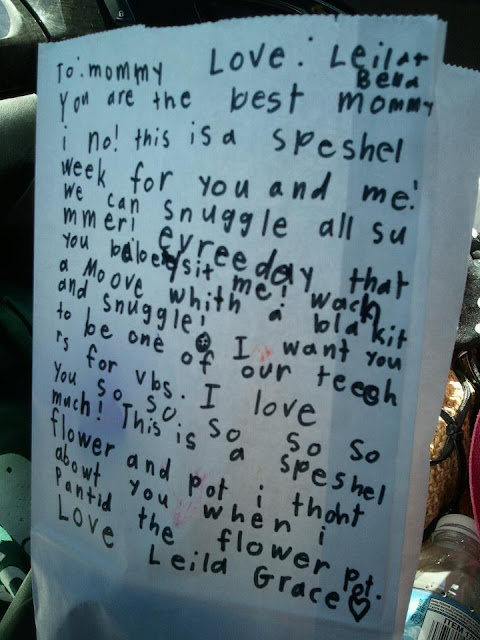 To: mommy Love: Leila +
Bella
You are the best mommy
i no! this is a speshel
week for you and me!
we can snuggle all su
mmer! evreeday that
you babeysit me! wach
a Moove whith a blakit
and snuggle! I want you
to be one of our teech
rs for vbs. I love
you so so so so so
much! This is a speshel
flower and pot i thoht
abowt you when i
Pantid the flower pot.
Love Leila Grace ♡